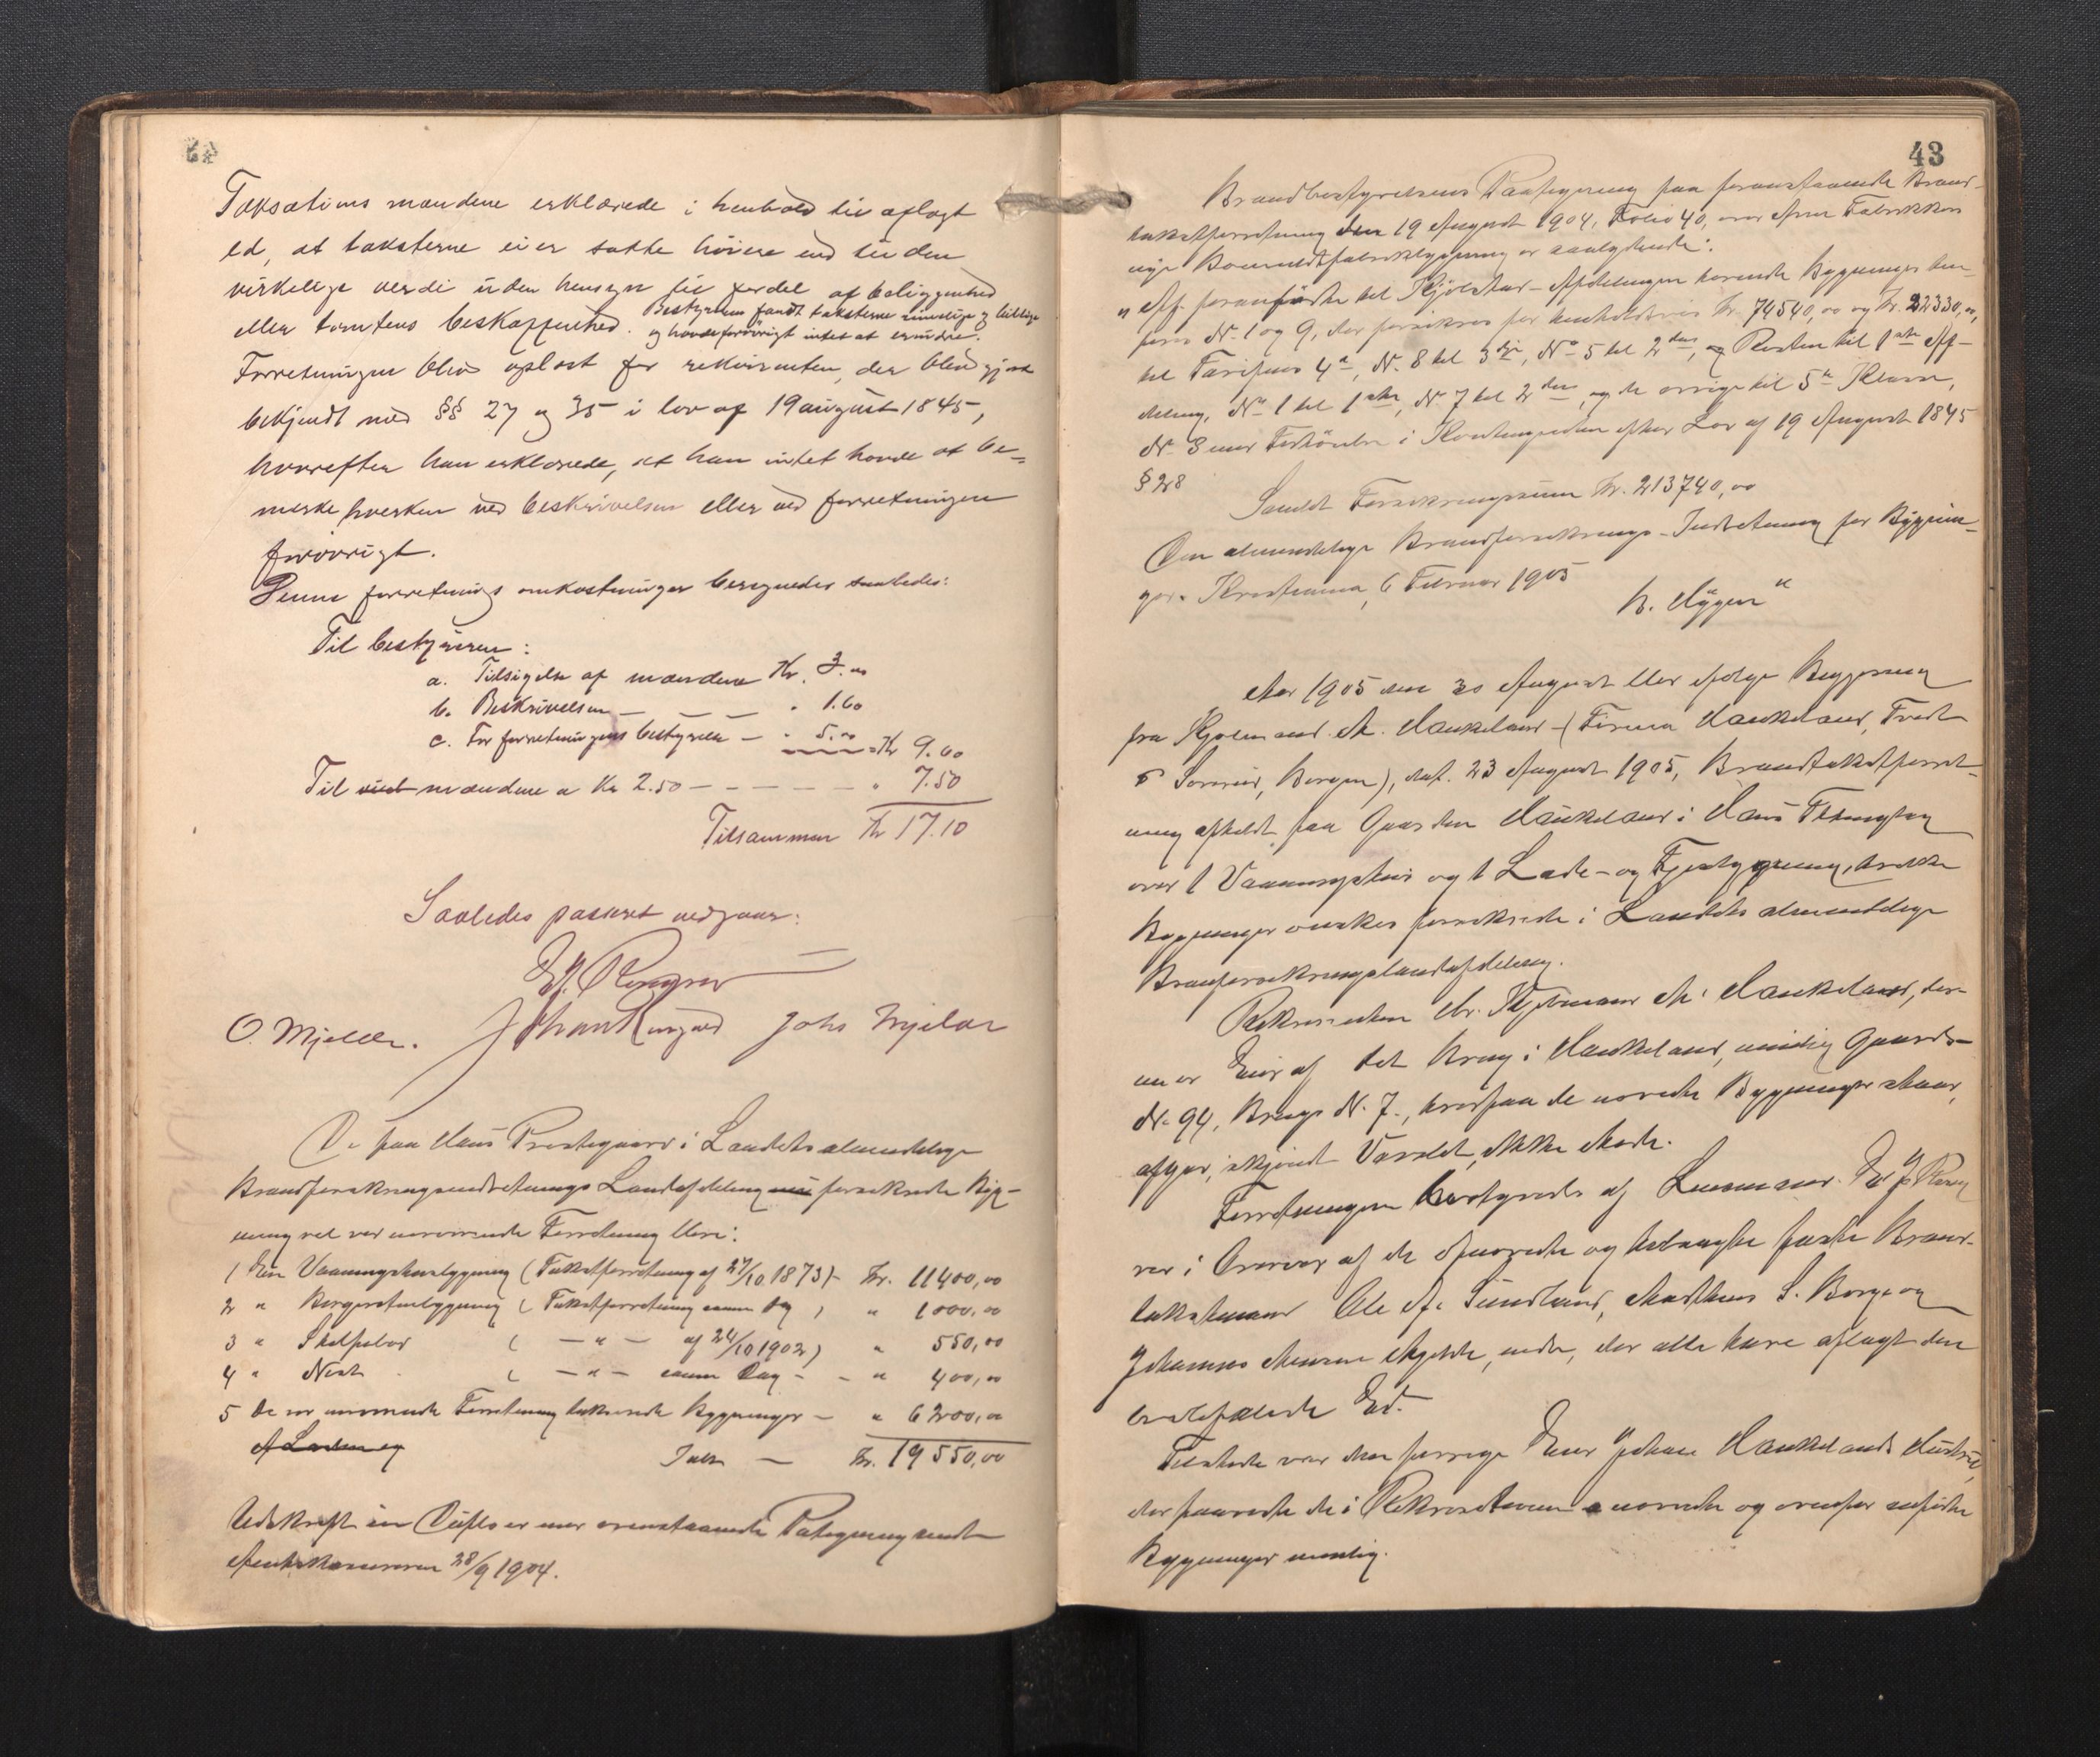 Taksations mændene erklærede i henhold til aflagt
ed, at taksterne ei er satte høiere end til den
virkelige verdi uden hensyn til fordel af beliggenhed
eller tomtens beskaffenhed. Bestyreren fandt taksterne rimelige og billige
og havde forövrigt intet at erindre.
Forretningen blev oplæst for rekvirenten, der blev gjort
bekjendt med §§ 27 og 35 i lov af 19 august 1845,
hvorefter han erklærede, at han intet havde at be-
mærke hverken ved beskrivelsen eller ved forretningen
forövrigt.
Denne forretnings omkostninger beregnedes saaledes:
Til bestyreren:
a. Tilsigelse af mændene Kr. 3.00
b. Beskrivelsen — — — " 1.60
c. For forretningens bestyrelse — " 5.00 = Kr 9.60
Til mændene a Kr 2.50 — — — — — " 7.50
Tilsammen Kr 17.10
Saaledes passeret vedgaaes:
O. Mjelde. Johs Mjelde
De paa Haus Prestegaard i Landets almindelige
Brandforsikringsindretnings Landafdeling forsikrede Byg-
ning vil ved nærværende Forretning blive:
1 Een Vaaningshusbygning (Takstforretning af 27/10 1873) - Kr. 11400,00
2 " Borgerstuebygning ( Takstforretning samme Dag ) " 1000,00
3 " Skelfebod " ( — " — af 24/10 1902) " 550,00
4 " Nøst ( — " — samme Dag - - " 400,00
5 De ved nærværende Forretning takserede Bygninger — " 6200,00
Ialt — Kr. 19550,00
Udskrift in Duplo er med ovenstaaende Paategning sendt
Amtskassereren 28/9 1904.
43
Brandbestyrelsens Paategning paa foranstaaende Brand-
takstforretning den 19 August 1904, Folio 40, over Arne Fabrikkers
nye Bomuldsfabrikbygning er saalydende:
" Af foranførte til Kjølstad-Afdelingen hørende Bygninger hen-
føres No. 1 og 9, der forsikres for henholdsvis Kr. 74540,00 og Kr. 22330,00,
til Tarifens 4de, No. 8 til 3die, No. 5 til 2den, og Resten til 1ste Af-
deling, No. 1 til 1ste, No. 7 til 2den, og de øvrige til 5te Klasse,
No. 8 med Forhöielse i Kontingenten efter Lov af 19 August 1845
§ 28
Samlet Forsikringssum Kr. 213740,00
Den almindelige Brandforsikrings-Indretning for Bygnin-
ger. Kristiania, 6 Februar 1905
Aar 1905 den 30 August blev ifölge Begjæring
fra Hjelmand A. Haukeland (Firma Haukeland, Tvedt
& Soreид, Bergen), dat. 23 August 1905, Brandtakstforret-
ning afholdt paa Gaarden Haukeland i Haus Thinglag
over 1 Vaaningshus og 1 Lade- og Fjøsbygning, hvilke
Bygninger ønskes forsikrede i Landets almindelige
Branforsikringslandafdeling.
Rekvirenten Hr. Hjelmand A. Haukeland, den-
ne er Eier af det Brug i Haukeland, nemlig Gaards-
No. 94, Brugs No. 7., hvorpaa de nævnte Bygninger staar,
afgav, skjønt Varslet, ikke Møde.
Forretningen bestyredes af Lensmand
ved i Overvær af de opnævnte og tilsagte faste Brand-
takstmænd Ole A. Sundland, Mathias S. Borge og
Johannes Monsen Mjelde, der alle have aflagt den
befalede Ed.
Tilstede var den forrige Eier Johan Haukelands Hustru,
der paaviste de i Rekvisitionen nævnte og ovenfor anførte
Bygninger nemlig.